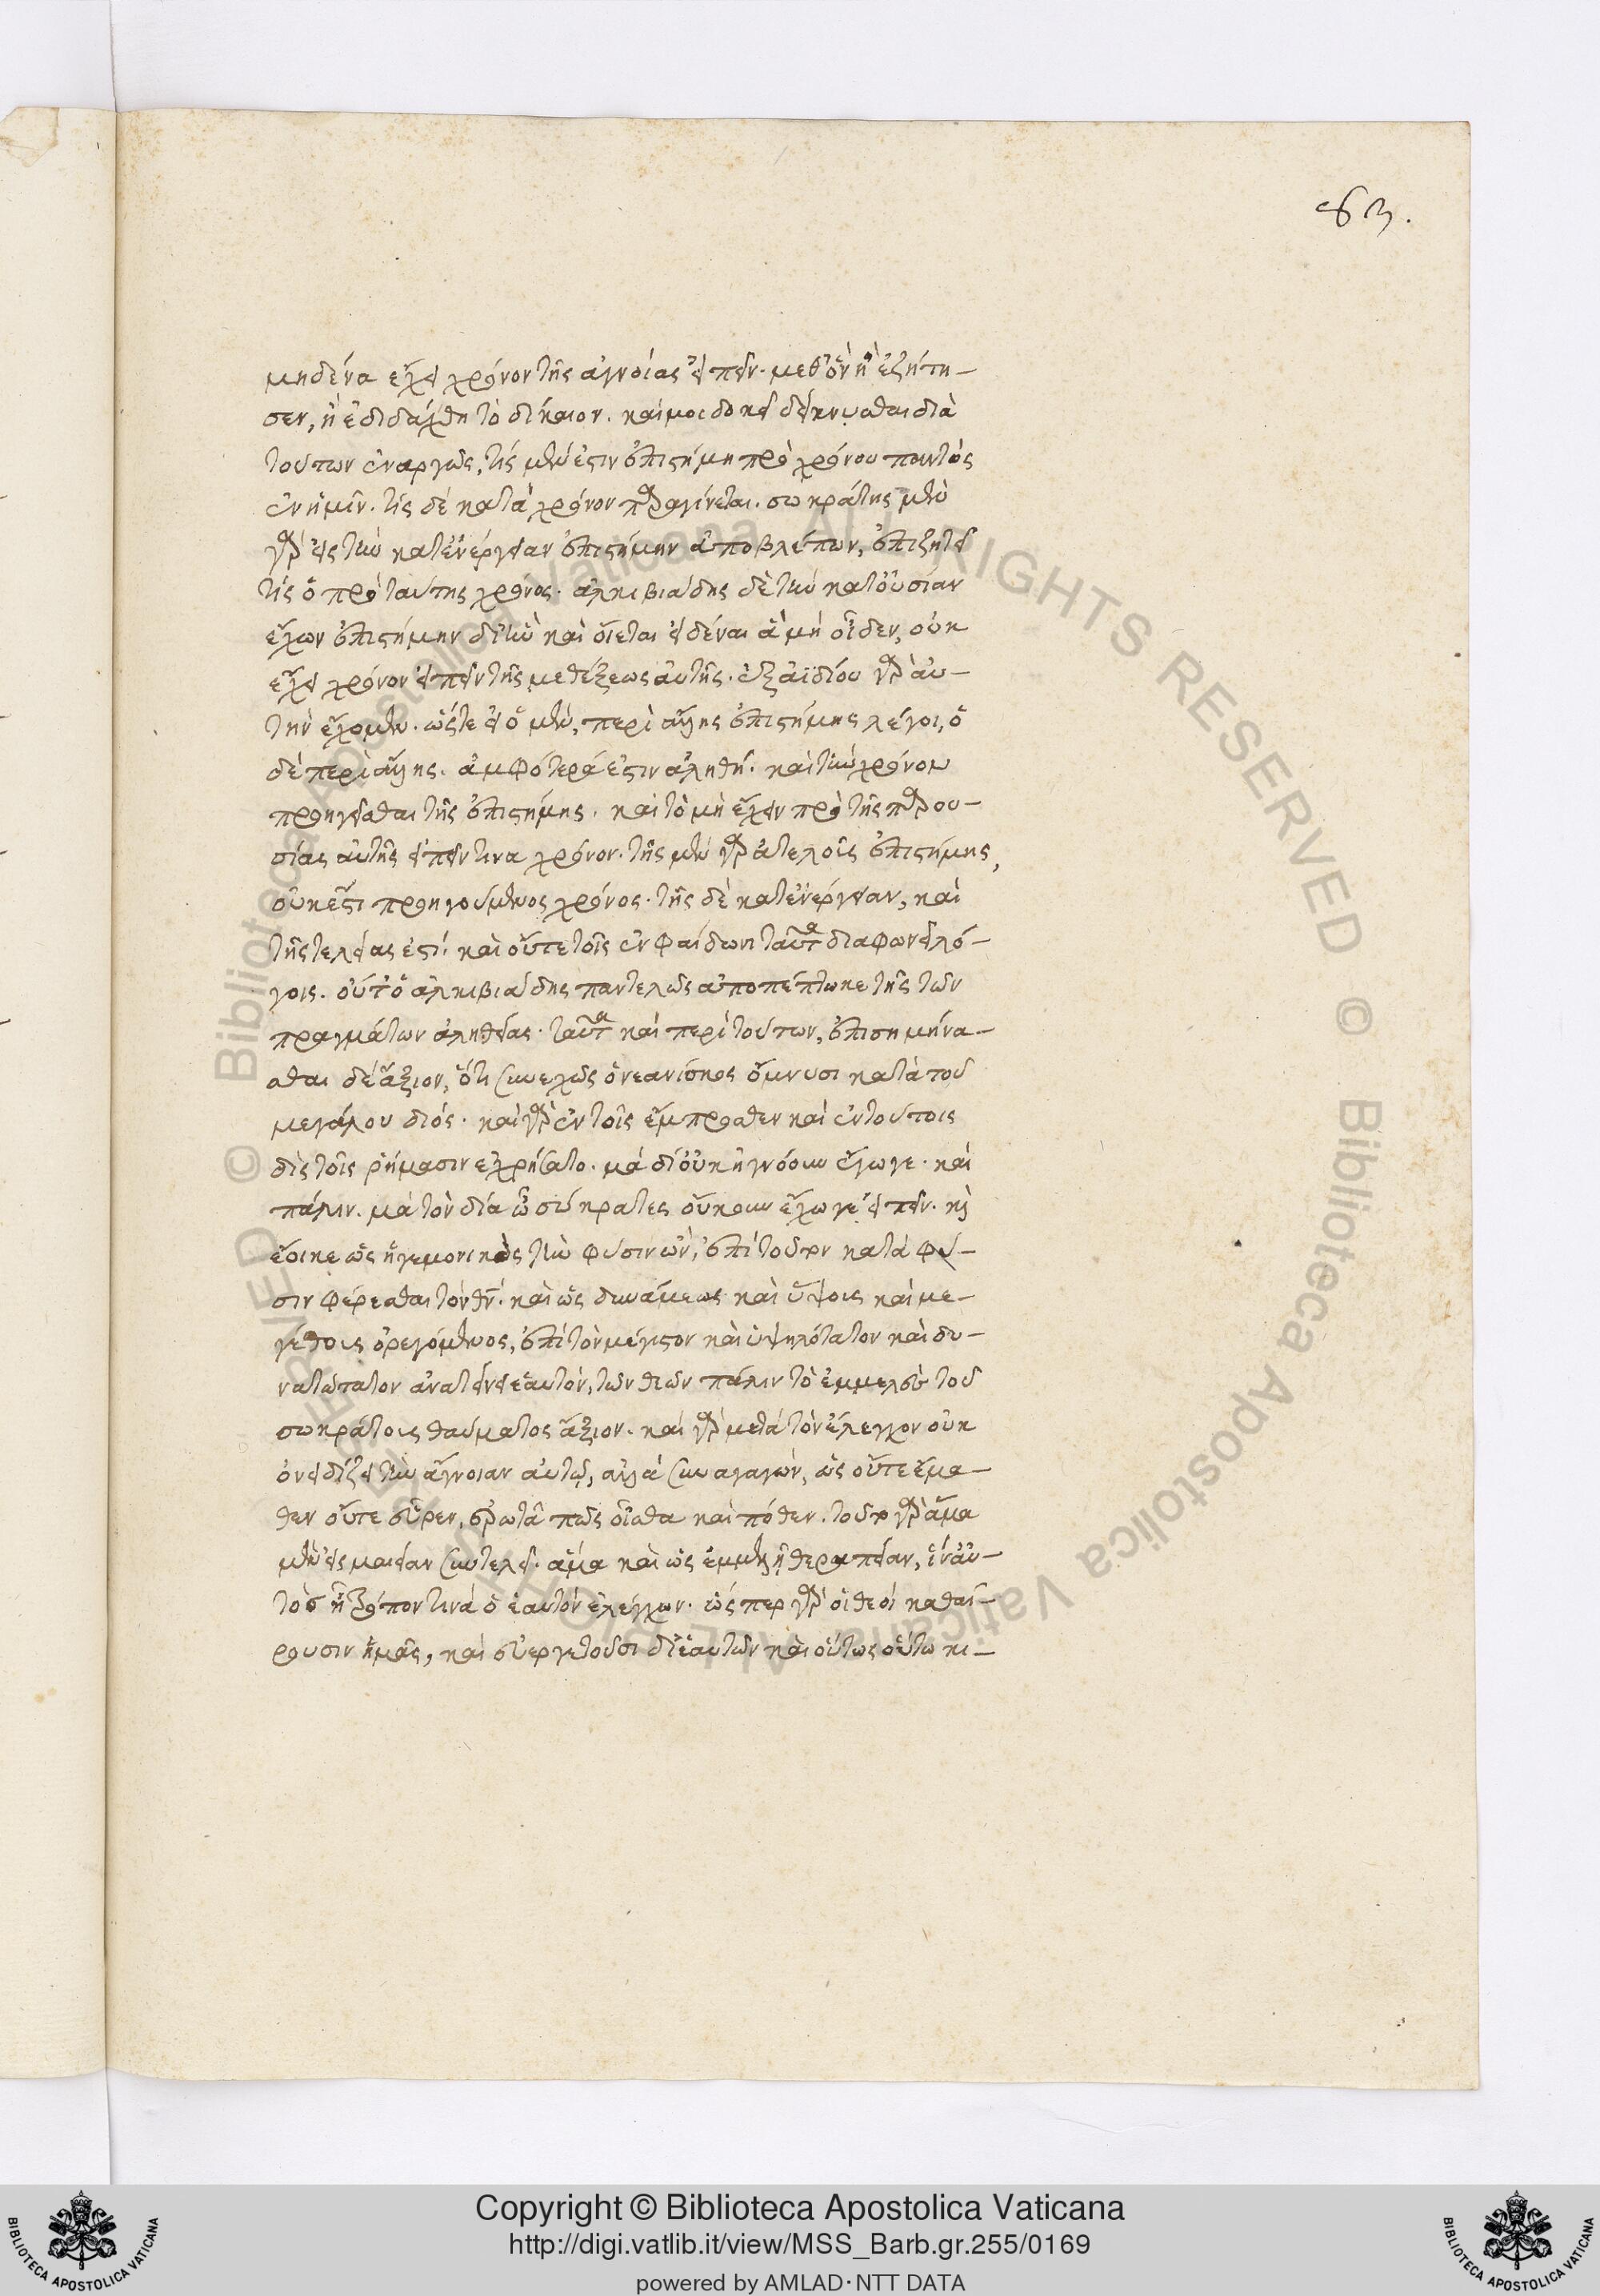 83.
μηδένα εἶχε χρόνον τῆς ἀγνοίας εἰπεῖν. μεθ' ὃν ἢ ἐζήτη-
σεν, ἢ ἐδιδάχθη τὸ δίκαιον. καί μοι δοκεῖ δείκνυσθαι διὰ
τούτων ἐναργῶς, τίς μὲν ἐστιν ἐπιστήμη πρὸ χρόνου παντὸς
ἐν ἡμῖν. τίς δὲ κατὰ χρόνον παραγίνεται. σωκράτης μὲν
γὰρ εἰς τὴν κατ' ἐνέργειαν ἐπιστήμην ἀποβλέπων, ἐπιζητεῖ
τίς ὁ πρὸ ταύτης χρόνος. ἀλκιβιάδης δὲ τὴν κατ' οὐσίαν
ἔχων ἐπιστήμην δι' ἣν καὶ οἴεται εἰδέναι ἃ μὴ οἶδεν, οὐκ
εἶχε χρόνον εἰπεῖν τῆς μεθέξεως αὐτῆς. ἐξ ἀϊδίου γὰρ αὐ-
τὴν ἔχομεν. ὥστε εἰ ὁ μὲν, περὶ ἄλλης ἐπιστήμης λέγοι, ὁ
δὲ περὶ ἄλλης. ἀμφότερά ἐστιν ἀληθῆ. καὶ τὸν χρόνον
προηγεῖσθαι τῆς ἐπιστήμης. καὶ τὸ μὴ ἔχειν πρὸ τῆς παρου-
σίας αὐτῆς εἰπεῖν τινα χρόνον. τῆς μὲν γὰρ ἀτελοῦς ἐπιστήμης,
οὐκ ἔστι προηγούμενος χρόνος. τῆς δὲ κατ' ἐνέργειαν, καὶ
τῆς τελείας ἐστί. καὶ οὔτε τοῖς ἐν φαίδωνι ταῦτα διαφωνεῖ λό-
γοις. οὔτ' ὁ ἀλκιβιάδης παντελῶς ἀποπέπτωκε τῆς τῶν
πραγμάτων ἀληθείας. ταῦτα καὶ περὶ τούτων, ἐπισημήνα-
σθαι δὲ ἄξιον, ὅτι συνεχῶς ὁ νεανίσκος ὄμνυσι κατὰ τοῦ
μεγάλου διός. καὶ γὰρ ἐν τοῖς ἔμπροσθεν καὶ ἐν τούτοις
δὶς τοῖς ῥήμασιν ἐχρήσατο. μὰ δί' οὐκ ἠγνόουν ἔγωγε. καὶ
πάλιν. μὰ τὸν δία ὦ σώκρατες οὔκουν ἔχω γε εἰπεῖν. καὶ
ἔοικε ὡς ἡγεμονικὸς τὴν φύσιν ὢν, ἐπὶ τοῦτον κατὰ φύ-
σιν φέρεσθαι τὸν θν. καὶ ὡς δυνάμεως καὶ ὕψους καὶ με-
γέθους ὀρεγόμενος, ἐπὶ τὸν μέγιστον καὶ ὑψηλότατον καὶ δυ-
νατώτατον ἀνατείνει ἑαυτόν, τῶν θεῶν πάλιν τὸ ἐμμελὲς τοῦ
σωκράτους θαύματος ἄξιον. καὶ γὰρ μετὰ τὸν ἔλεγχον οὐκ
ὀνειδίζει τὴν ἄγνοιαν αὐτῷ, ἀλλὰ συναγαγών, ὡς οὔτε ἔμα-
θεν οὔτε εὗρεν, ἐρωτᾷ πῶς οἶσθα καὶ πόθεν. τοῦτο γὰρ ἅμα
μὲν εἰς μαιείαν συντελεῖ. ἅμα καὶ ὡς ἐμμελὴς ἡ θεραπείαν, ἵν' αὐ-
τὸς ᾖ τρόπον τινὰ ὁ ἑαυτὸν ἐλέγχων. ὥσπερ γὰρ οἱ θεοὶ καθαί-
ρουσιν ἡμᾶς, καὶ εὐεργετοῦσι δι' ἑαυτῶν καὶ οὕτως οὕτω κι-
Copyright © Biblioteca Apostolica Vaticana
http://digi.vatlib.it/view/MSS_Barb.gr.255/0169
powered by AMLAD·NTT DATA
BIBLIOTECA APOSTOLICA VATICANA
BIBLIOTECA APOSTOLICA VATICANA
© Biblioteca Apostolica Vaticana ALL RIGHTS RESERVED © Biblioteca Apostolica Vaticana ALL RIGHTS RESERVED